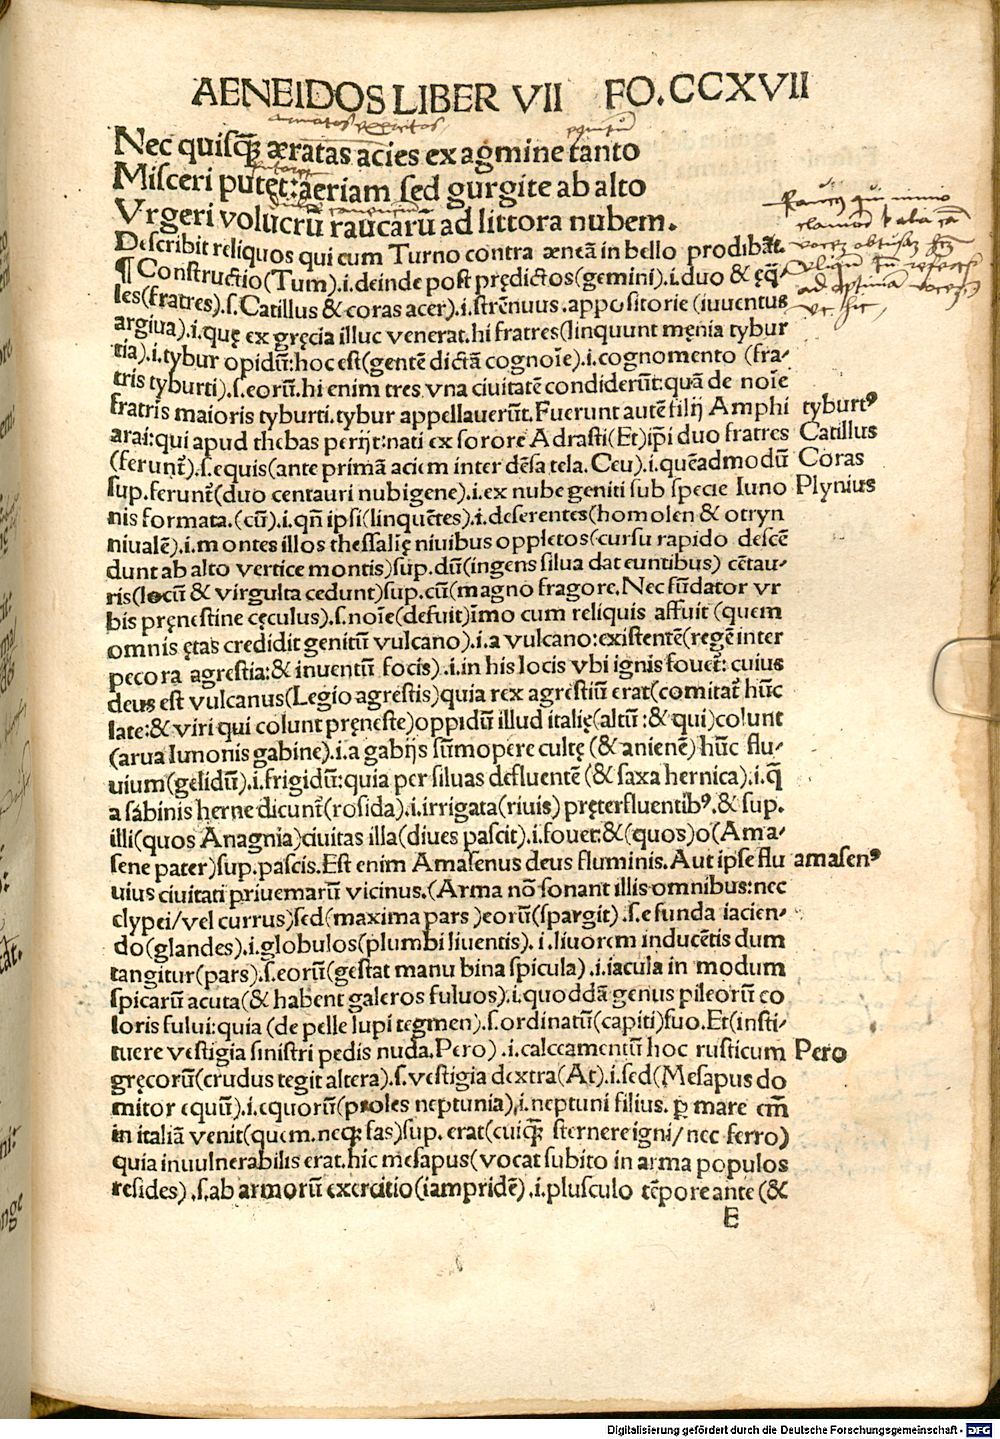 AENEIDOS LIBER VII FO. CCXVII
armatos exercitos
Nec quisq̃ꝫ æratas acies ex agmine tanto
Misceri putet: aeriam sed gurgite ab alto
Vrgeri volucrũ raucarũ ad littora nubem.
Describit reliquos qui cum Turno contra æneã in bello prodibãt.
¶ Constructio (Tum).i.deinde post prędictos(gemini).i.duo & ęq̃-
les(fratres).s.Catillus & coras acer).i.strẽnuus.appositorie (iuuentus
argiua).i.quę ex gręcia illuc venerat.hi fratres(linquunt męnia tybur
tia).i.tybur opidũ:hoc est(gentẽ dictã cognoĩe).i.cognomento (fra-
tris tyburti).s.eorũ.hi enim tres vna ciuitatẽ condiderũt:quã de noĩe
fratris maioris tyburti.tybur appellauerũt.Fuerunt autẽ filij Amphi
tyburtꝰ
arai:qui apud thebas perijt:nati ex sorore Adrasti(Et)ip̃i duo fratres
Catillus
(ferunt̃).s.equis(ante primã aciem inter dẽsa tela. Ceu).i.quẽadmodũ
Coras
sup.ferunt̃(duo centauri nubigene).i.ex nube geniti sub specie Iuno
Plynius
nis formata.(cũ).i.qñ ipsi(linquẽtes).i.deserentes(homolen & otryn
niualẽ).i.montes illos thessalię niuibus oppletos(cursu rapido descẽ
dunt ab alto vertice montis)sup.dũ(ingens silua dat euntibus) cẽtau-
ris(locũ & virgulta cedunt)sup.cũ(magno fragore. Nec fũdator vr
bis pręnestine cęculus).s.noĩe(defuit)ĩmo cum reliquis affuit (quem
omnis ętas credidit genitũ vulcano).i.a vulcano:existentẽ(regẽ inter
pecora agrestia:& inuentũ focis).i.in his locis vbi ignis fouet̃: cuius
deus est vulcanus(Legio agrestis)quia rex agrestiũ erat(comitat̃ hũc
late:& viri qui colunt pręneste)oppidũ illud italię(altũ:& qui)colunt
(arua Iunonis gabine).i.a gabijs sũmopere cultę (& anienẽ) hũc flu-
uium(gelidũ).i.frigidũ:quia per siluas defluentẽ (& saxa hernica).i.q̃
a sabinis herne dicunt̃(rosida).i.irrigata(riuis) pręterfluentibꝰ.& sup.
illi(quos Anagnia)ciuitas illa(diues pascit).i.fouet.&(quos)o(Ama-
sene pater)sup.pascis.Est enim Amasenus deus fluminis.Aut ipse flu
amasenꝰ
uius ciuitati priuemarũ vicinus.(Arma nõ sonant illis omnibus:nec
clypei/vel currus)sed(maxima pars )eorũ(spargit).s.e funda iacien-
do(glandes).i.globulos(plumbi liuentis). i.liuorem inducẽtis dum
tangitur(pars).s.eorũ(gestat manu bina spicula).i.iacula in modum
spicarũ acuta(& habent galeros fuluos).i.quoddã genus pileorũ co
loris fului:quia (de pelle lupi tegmen).s.ordinatũ(capiti)suo.Et(insti-
tuere vestigia sinistri pedis nuda.Pero).i.calceamentũ hoc rusticum
Pero
gręcorũ(crudus tegit altera).s.vestigia dextra(At).i.sed(Mesapus do
mitor equũ).i.equorũ(proles neptunia).i.neptuni filius. ꝑ mare em̃
in italiã venit(quem.neqꝫ fas)sup. erat(cuiq̃ꝫ sternere igni/nec ferro)
quia inuulnerabilis erat.hic mesapus(vocat subito in arma populos
resides).s.ab armorũ exercitio(iampridẽ).i.plusculo tẽpore ante (&
E
Digitalisierung gefördert durch die Deutsche Forschungsgemeinschaft - DFG